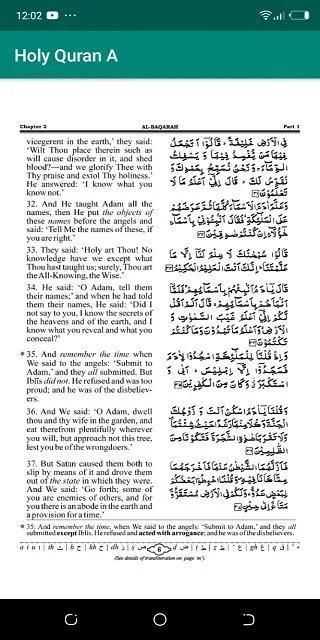 12:02
Holy Quran A
Chapter 2 AL-BAQARAH Part 1
vicegerent in the earth,' they said:
'Wilt Thou place therein such as
will cause disorder in it, and shed
blood?—and we glorify Thee with
Thy praise and extol Thy holiness.'
He answered: 'I know what you
know not.'
32. And He taught Adam all the
names, then He put the objects of
these names before the angels and
said: 'Tell Me the names of these, if
you are right.'
33. They said: 'Holy art Thou! No
knowledge have we except what
Thou hast taught us; surely, Thou art
the All-Knowing, the Wise.'
34. He said: 'O Adam, tell them
their names;' and when he had told
them their names, He said: 'Did I
not say to you, I know the secrets of
the heavens and of the earth, and I
know what you reveal and what you
conceal?'
*35. And remember the time when
We said to the angels: 'Submit to
Adam,' and they all submitted. But
Iblīs did not. He refused and was too
proud; and he was of the disbeliev-
ers.
36. And We said: 'O Adam, dwell
thou and thy wife in the garden, and
eat therefrom plentifully wherever
you will, but approach not this tree,
lest you be of the wrongdoers.'
37. But Satan caused them both to
slip by means of it and drove them
out of the state in which they were.
And We said: 'Go forth; some of
you are enemies of others, and for
you there is an abode in the earth and
a provision for a time.'
فِي الْاَرْضِ خَلِيْفَةً ؕ قَالُوْۤا اَتَجْعَلُ
فِيْهَا مَنْ يُّفْسِدُ فِيْهَا وَ يَسْفِكُ
الدِّمَآءَ ۚ وَ نَحْنُ نُسَبِّحُ بِحَمْدِكَ وَ
نُقَدِّسُ لَكَ ؕ قَالَ اِنِّيْۤ اَعْلَمُ مَا لَا
تَعْلَمُوْنَ
وَ عَلَّمَ اٰدَمَ الْاَسْمَآءَ كُلَّهَا ثُمَّ عَرَضَهُمْ
عَلَى الْمَلٰٓئِكَةِ ۙ فَقَالَ اَنْۢبِـُٔوْنِيْ بِاَسْمَآءِ
هٰۤؤُلَآءِ اِنْ كُنْتُمْ صٰدِقِيْنَ
قَالُوْا سُبْحٰنَكَ لَا عِلْمَ لَنَاۤ اِلَّا مَا
عَلَّمْتَنَا ؕ اِنَّكَ اَنْتَ الْعَلِيْمُ الْحَكِيْمُ
قَالَ يٰۤاٰدَمُ اَنْۢبِئْهُمْ بِاَسْمَآئِهِمْ ۚ فَلَمَّاۤ
اَنْۢبَاَهُمْ بِاَسْمَآئِهِمْ ۙ قَالَ اَلَمْ اَقُلْ
لَّكُمْ اِنِّيْۤ اَعْلَمُ غَيْبَ السَّمٰوٰتِ وَ
الْاَرْضِ ۙ وَ اَعْلَمُ مَا تُبْدُوْنَ وَ مَا كُنْتُمْ
تَكْتُمُوْنَ
وَ اِذْ قُلْنَا لِلْمَلٰٓئِكَةِ اسْجُدُوْا لِاٰدَمَ
فَسَجَدُوْۤا اِلَّاۤ اِبْلِيْسَ ؕ اَبٰى وَ
اسْتَكْبَرَ ۫ وَ كَانَ مِنَ الْكٰفِرِيْنَ
وَ قُلْنَا يٰۤاٰدَمُ اسْكُنْ اَنْتَ وَ زَوْجُكَ
الْجَنَّةَ وَ كُلَا مِنْهَا رَغَدًا حَيْثُ شِئْتُمَا ۪
وَ لَا تَقْرَبَا هٰذِهِ الشَّجَرَةَ فَتَكُوْنَا مِنَ
الظّٰلِمِيْنَ
فَاَزَلَّهُمَا الشَّيْطٰنُ عَنْهَا فَاَخْرَجَهُمَا
مِمَّا كَانَا فِيْهِ ۪ وَ قُلْنَا اهْبِطُوْا بَعْضُكُمْ
لِبَعْضٍ عَدُوٌّ ۚ وَ لَكُمْ فِي الْاَرْضِ مُسْتَقَرٌّ وَّ
مَتَاعٌ اِلٰى حِيْنٍ
*35. And remember the time, when We said to the angels: 'Submit to Adam,' and they all
submitted except Iblīs. He refused and acted with arrogance; and he was of the disbelievers.
6
(See details of transliteration on page 'm').